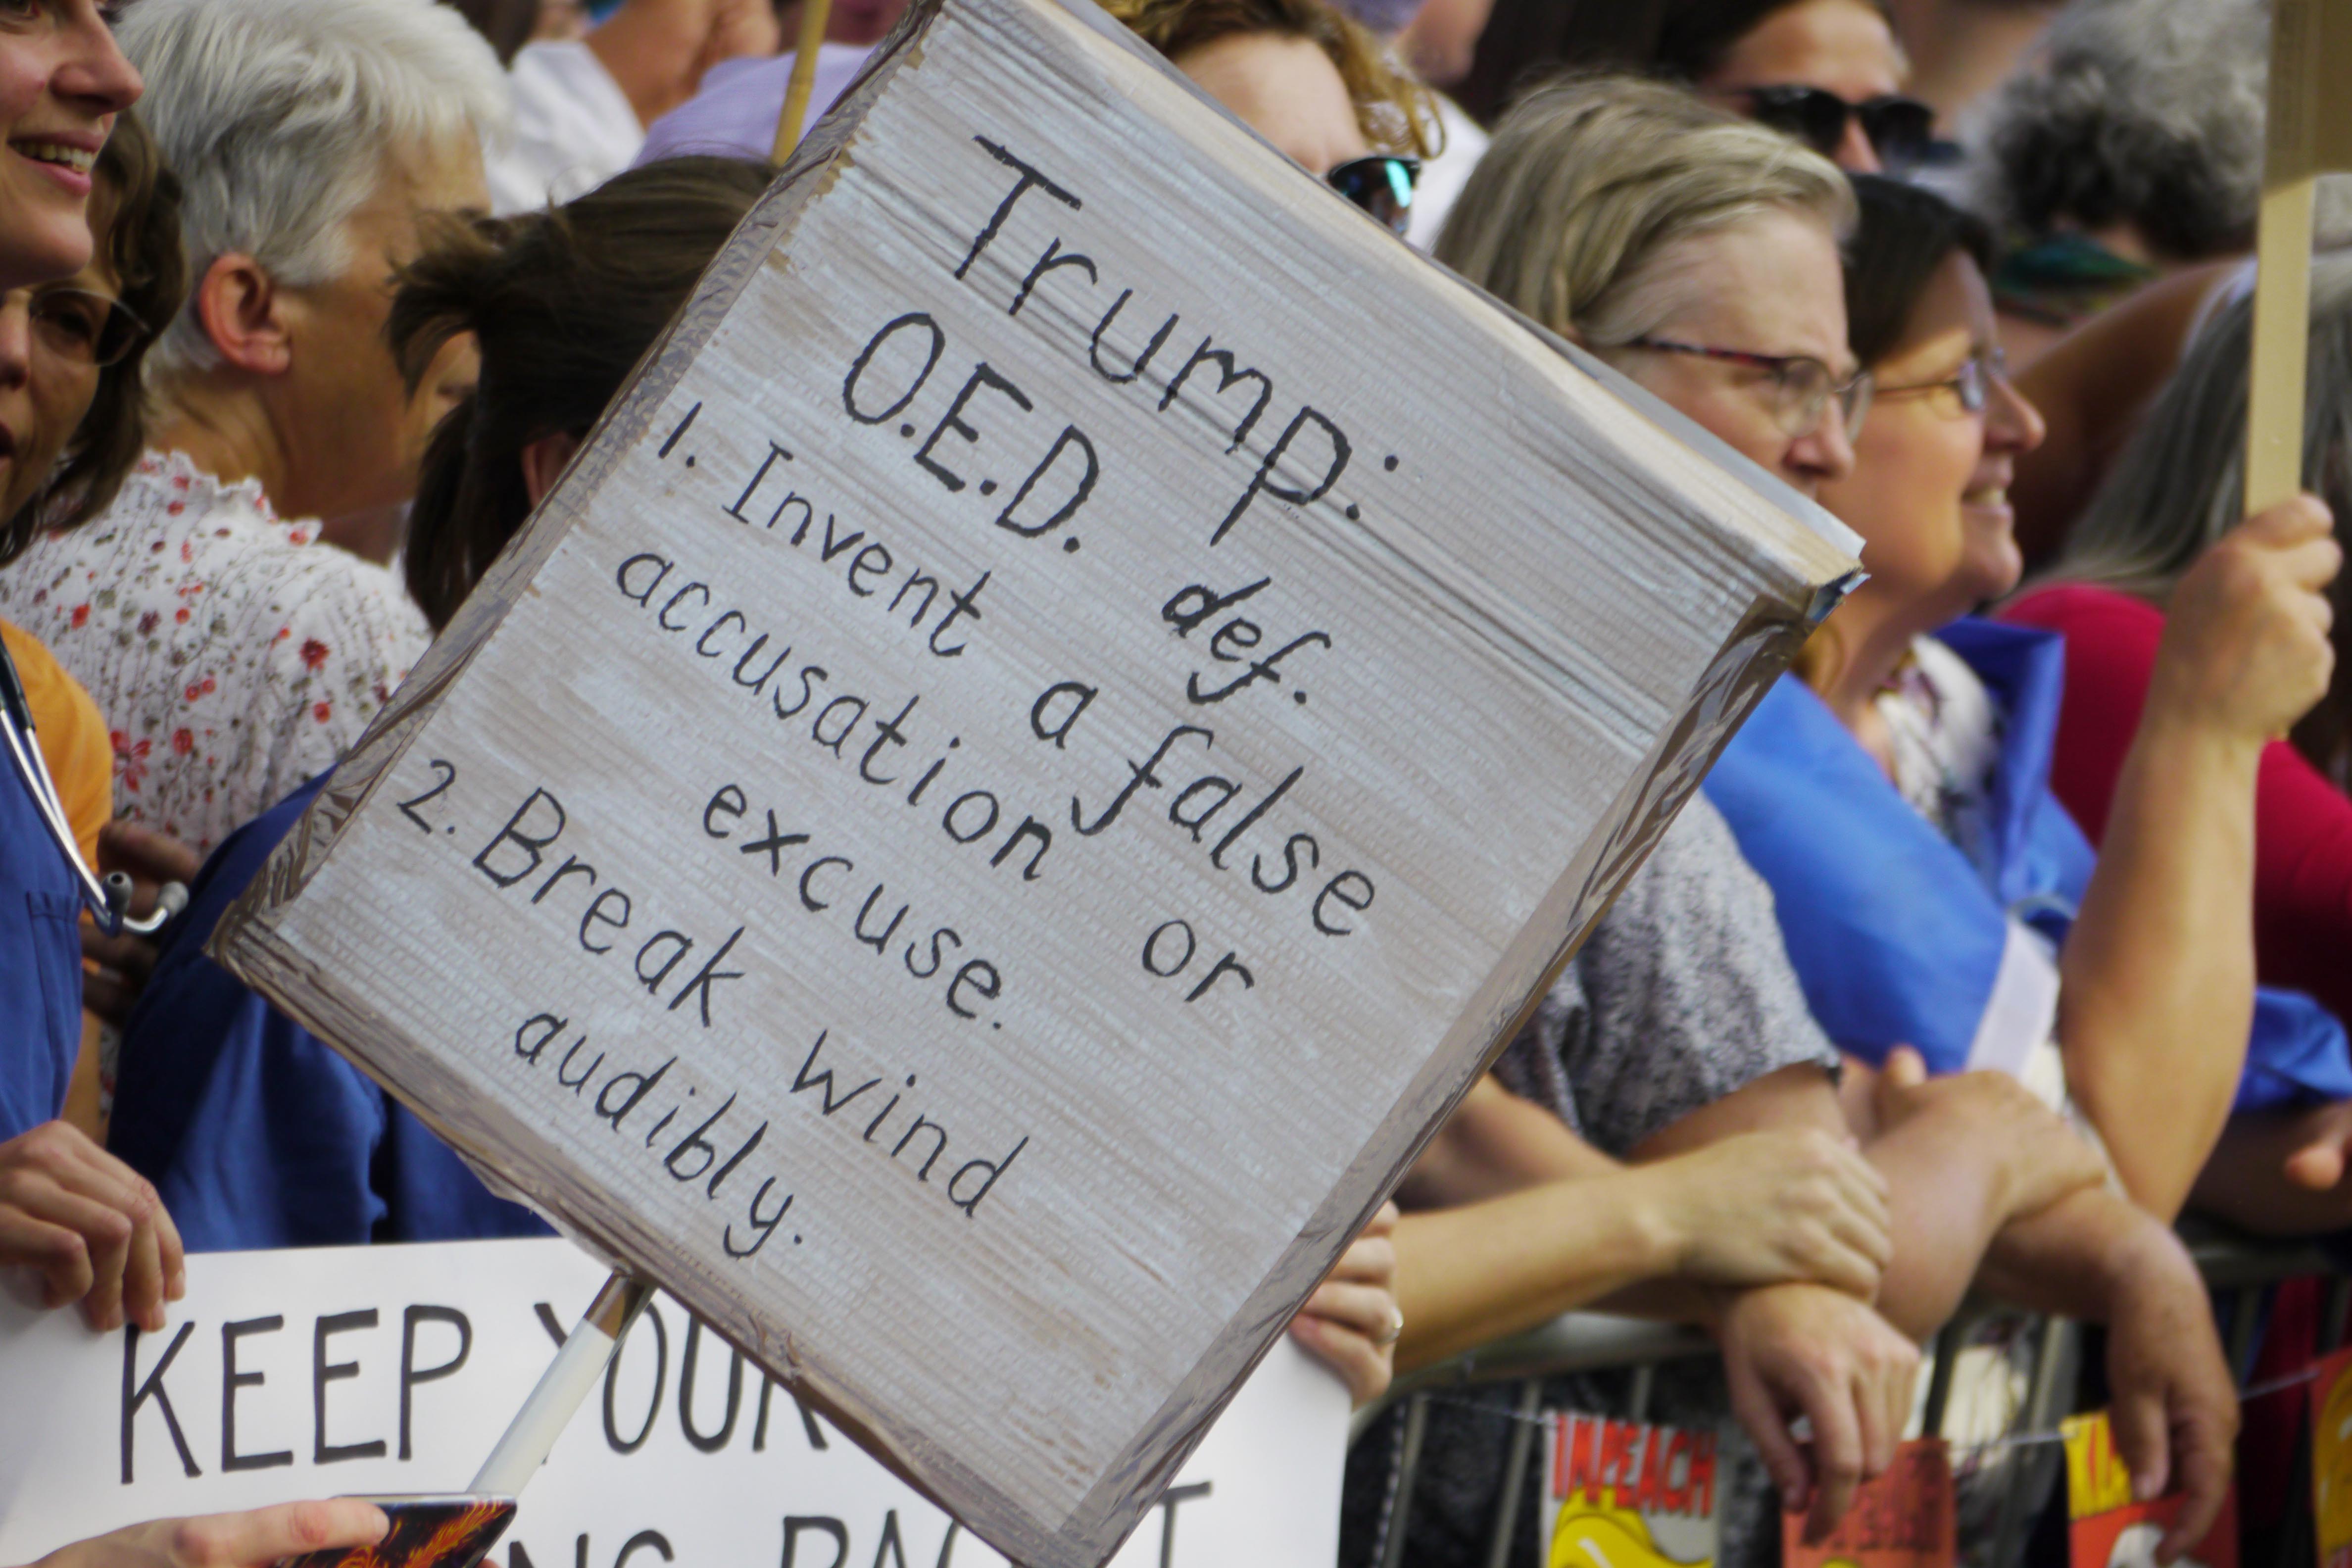 Trump:
O.E.D. def.
1. Invent a false
accusation or
excuse.
2. Break wind
audibly.
KEEP YOUR
IMPEACH